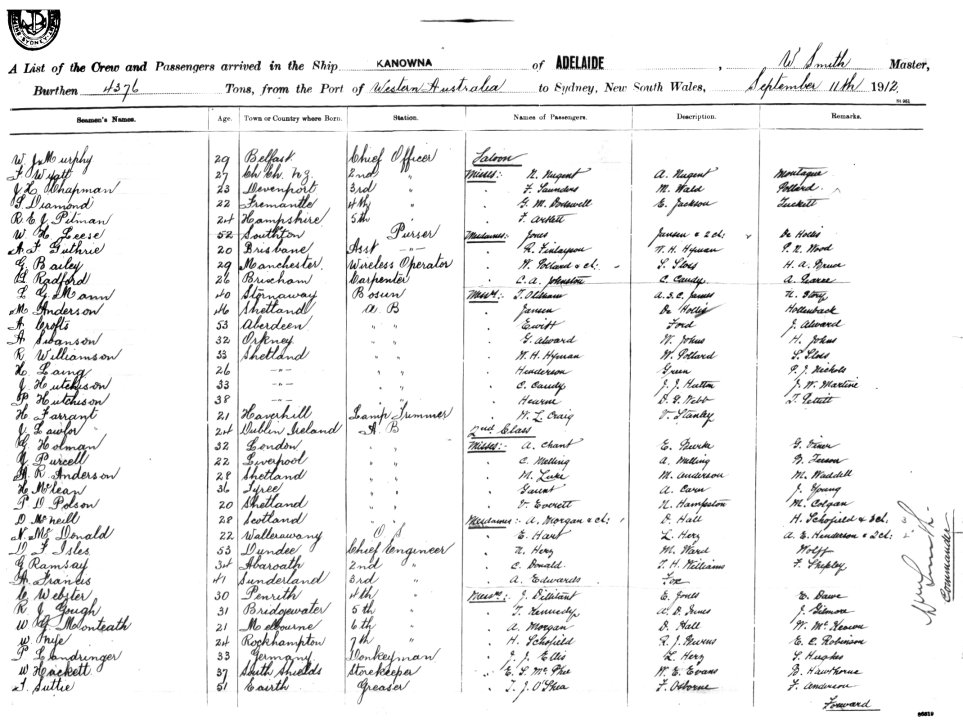 A List of the Crew and Passengers arrived in the Ship KANOWNA of ADELAIDE, W Smith Master,
Burthen 4376 Tons, from the Port of Western Australia to Sydney, New South Wales, September 11th 1912.
Seamen's Names. Age. Town or Country where Born. Station. Names of Passengers. Description. Remarks.
W J Murphy 29 Belfast Chief Officer Saloon
F Wyatt 27 Ch Ch. N.Z. 2nd " Misses:- N. Nugent A. Nugent Montague
J L Chapman 23 Devenport 3rd " F. Saunders M. Wald Pollard
S Diamond 22 Fremantle 4th " G. M. E. Jackson Tuckett
R E J Pitman 24 Hampshire 5th " F.
W H Leese 52 Southton Purser Mesdames:- Jones Jansen & 2 ch: De Hollis
A F Guthrie 20 Brisbane Asst -"- R. Finlayson W. H. Hyman P. N. Wood
G Bailey 29 Manchester Wireless Operator W. Pollard & ch: S. Sloss H. A. Bruce
Radford 26 Brixham Carpenter C. A. Johnston C. Candy A. Pearce
L G Mann 40 Stornaway Bosun Messrs:- T. Oldham A. S. C. James N. Story
M Anderson 46 Shetland A B Jansen De Hollis Hollenback
A Crofts 53 Aberdeen " " Ewitt Ford J. Alward
A Swanson 32 Orkney " " G. Alward W. Johns H. Johns
R Williamson 33 Shetland " " W. H. Hyman W. Pollard S. Sloss
H Laing 26 -"- " " Henderson Green P. J. Nichols
J Hutchison 33 -"- " " C. Candy J. J. Hutton J. W. Martine
P Hutchison 38 -"- " " Hearne D. G. Webb T. Pettitt
H Farrant 21 Haverhill Lamp Trimmer W. L. Craig V. Stanley
J Lawlor 24 Dublin Ireland A. B 2nd Class
G Holman 32 London " " Misses:- A. Chant E. Burke G. Viner
Purcell 22 Liverpool " " C. Melling A. Melling
R Anderson 29 Shetland " " M. Luke M. Anderson M. Waddell
H McLean 36 Tyree " " Gaunt A. Carn J. Young
P D Polson 20 Shetland " " V. Everett N. Hampston M. Colgan
D McNeill 28 Scotland " " Mesdames:- A. Morgan & ch: D. Hall H. Schofield & 3 ch:
N. McDonald 22 Wallerawang O. S E. Hart L. Herz A. E. Henderson & 2 ch:
D F Isles 53 Dundee Chief Engineer N. Herz M. Ward Wolff
G Ramsay 34 Abaroath 2nd " C. Donald T. H. Williams F. Shipley
A Francis 41 Sunderland 3rd " A. Edwards Fox
C Webster 30 Penrith 4th " Messrs:- J. Dillitant E. Jones E. Dawe
R J Gough 31 Bridgewater 5th " T. Kennedy A. D. Innes J. Gilmore
W G Monteath 21 Melbourne 6th " A. Morgan D. Hall W. McKeown
W Fife 24 Rockhampton 7th " H. Schofield R. J. E. E. Robinson
P Landringer 33 Germany Donkeyman J. J. Ellis L. Herz S. Hughes
W Hackett 37 South Shields Storekeeper E. S. McPhee W. E. Evans B. Hawthorne
J. Suttie 51 Cairth Greaser T. J. O'Shea F. Osborne F. Anderson
Forward
Wm Smith
Commander